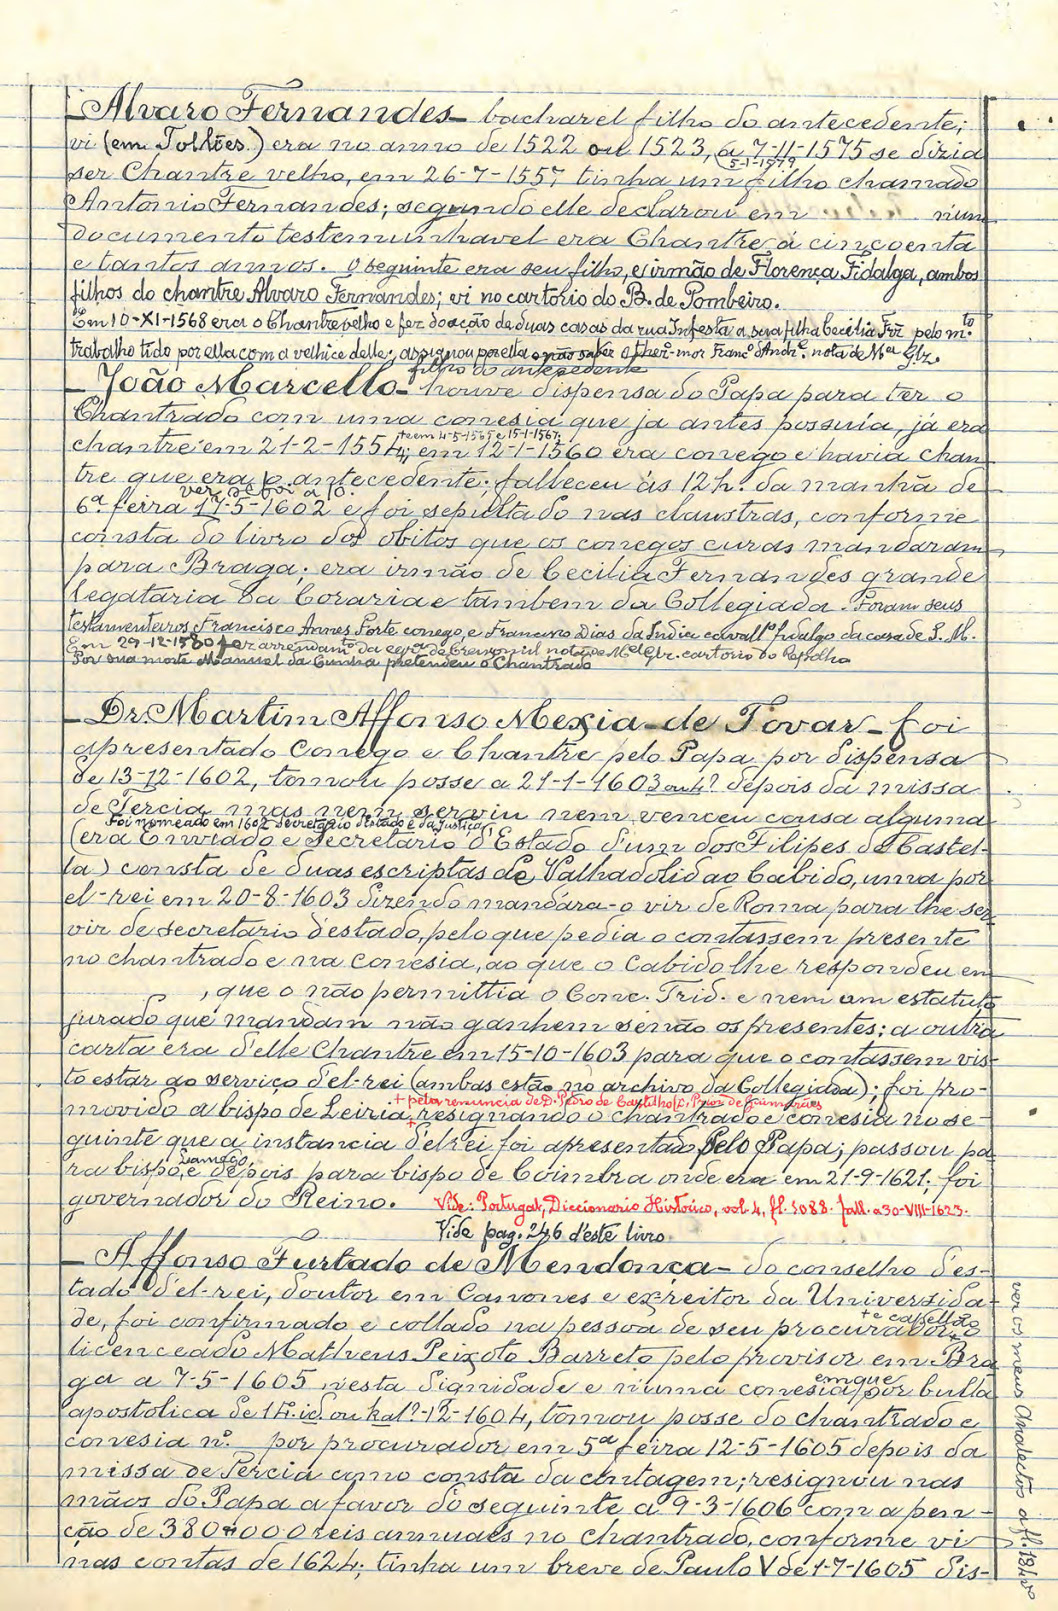 – Alvaro Fernandes – bacharel filho do antecedente;
vi (em Tolões.) era no anno de 1522 ou 1523, a 7-11-1575 se dizia
5-1-1579
ser Chantre velho, em 26-7-1557 tinha um filho chamado
Antonio Fernandes; segundo elle declarou em num
documento testemunhavel era Chantre á cincoenta
e tantos annos. O seguinte era seu filho, e irmão de Florença Fidalga, ambos
filhos do chantre Alvaro Fernandes; vi no cartorio do B. de Pombeiro.
Em 10-XI-1568 era o Chantre velho e fez doação de duas casas da rua Infesta a sua filha Cecilia Frz pelo m.to
trabalho tido por ella com a velhice delle; assignou por ella o não saber o thez.-mor Franc.º d'Andr.e nota de M.el Glz.
filho do antecedente
– João Marcello – houve dispensa do Papa para ter o
Chantrado com uma conesia que ja antes possuia, já era
e em 4-5-1565 e 15-1-1567
chantre em 21-2-1554; em 12-1-1560 era conego e havia chan-
tre que era o antecedente; falleceu ás 12h. da manhã de
ver se foi a 10.
6ª feira 17-5-1602 e foi sepultado nas claustras, conforme
consta do livro dos obitos que os conegos curas mandaram
para Braga; era irmão de Cecilia Fernandes grande
legataria da Coraria e tambem da Collegiada. Foram seus
testamenteiros Francisco Annes Forte conego, e Francisco Dias da India cavall.º fidalgo da casa de S. M.
Em 29-12-1580 fez arrendam.to da egr.ª de Creixomil nota de M.el Glz. cartorio do Repolho
Por sua morte Manuel da Cunha pretendeu o Chantrado
– Dr. Martim Affonso Mexia de Tovar – foi
apresentado Conego e Chantre pelo Papa por dispensa
de 13-12-1602, tomou posse a 21-1-1603 ou 4? depois da missa
de Tercia mas nem serviu nem venceu cousa alguma
Foi nomeado em 1602 secretario d'estado e da justiça
(era Enviado e Secretario d'Estado d'um dos Filipes de Castel-
la) consta de duas escriptas de Valhadolid ao Cabido, uma por
el-rei em 20-8-1603 dizendo mandára-o vir de Roma para lhe ser-
vir de secretario d'estado, pelo que pedia o contassem presente
no chantrado e na conesia, ao que o Cabido lhe respondeu em
, que o não permittia o Conc. Trid. e nem um estatuto
jurado que mandam não ganhem senão os presentes: a outra
carta era d'elle Chantre em 15-10-1603 para que o contassem vis-
to estar ao serviço d'el-rei (ambas estão no archivo da Collegiada); foi pro-
+ pela renuncia de D. Pedro de Castilho, Prior de Guimarães
movido a bispo de Leiria + resignando o chantrado e conesia no se-
guinte que a instancia d'elrei foi apresentado pelo Papa; passou pa-
Lamego
ra bispo, e depois para bispo de Coimbra onde era em 21-9-1621; foi
governador do Reino. Vide: Portugal, Diccionario Historico, vol. 4, fl. 1088. fall. a 30-VIII-1623.
Vide pag. 246 d'este livro
– Affonso Furtado de Mendonça – do conselho d'es-
tado d'el-rei, doutor em Canones e ex-reitor da Universida-
+ e capellão
de, foi confirmado e collado na pessoa de seu procurador o
licenceado Matheus Peixoto Barreto pelo provisor em Bra
ga a 7-5-1605 nesta dignidade e numa conesia, por bulla
em que
apostolica de 14. id. ou kal.? -12-1604, tomou posse do chantrado e
conesia n.º por procurador em 5ª feira 12-5-1605 depois da
missa de Tercia como consta da contagem; resignou nas
mãos do Papa a favor do seguinte a 9-3-1606 com a pen-
ção de 380$000 reis annuaes no chantrado, conforme vi
nas contas de 1624; tinha um breve de Paulo V de 1-7-1605 dis-
ver os meus Analectos a fl. 184 vº